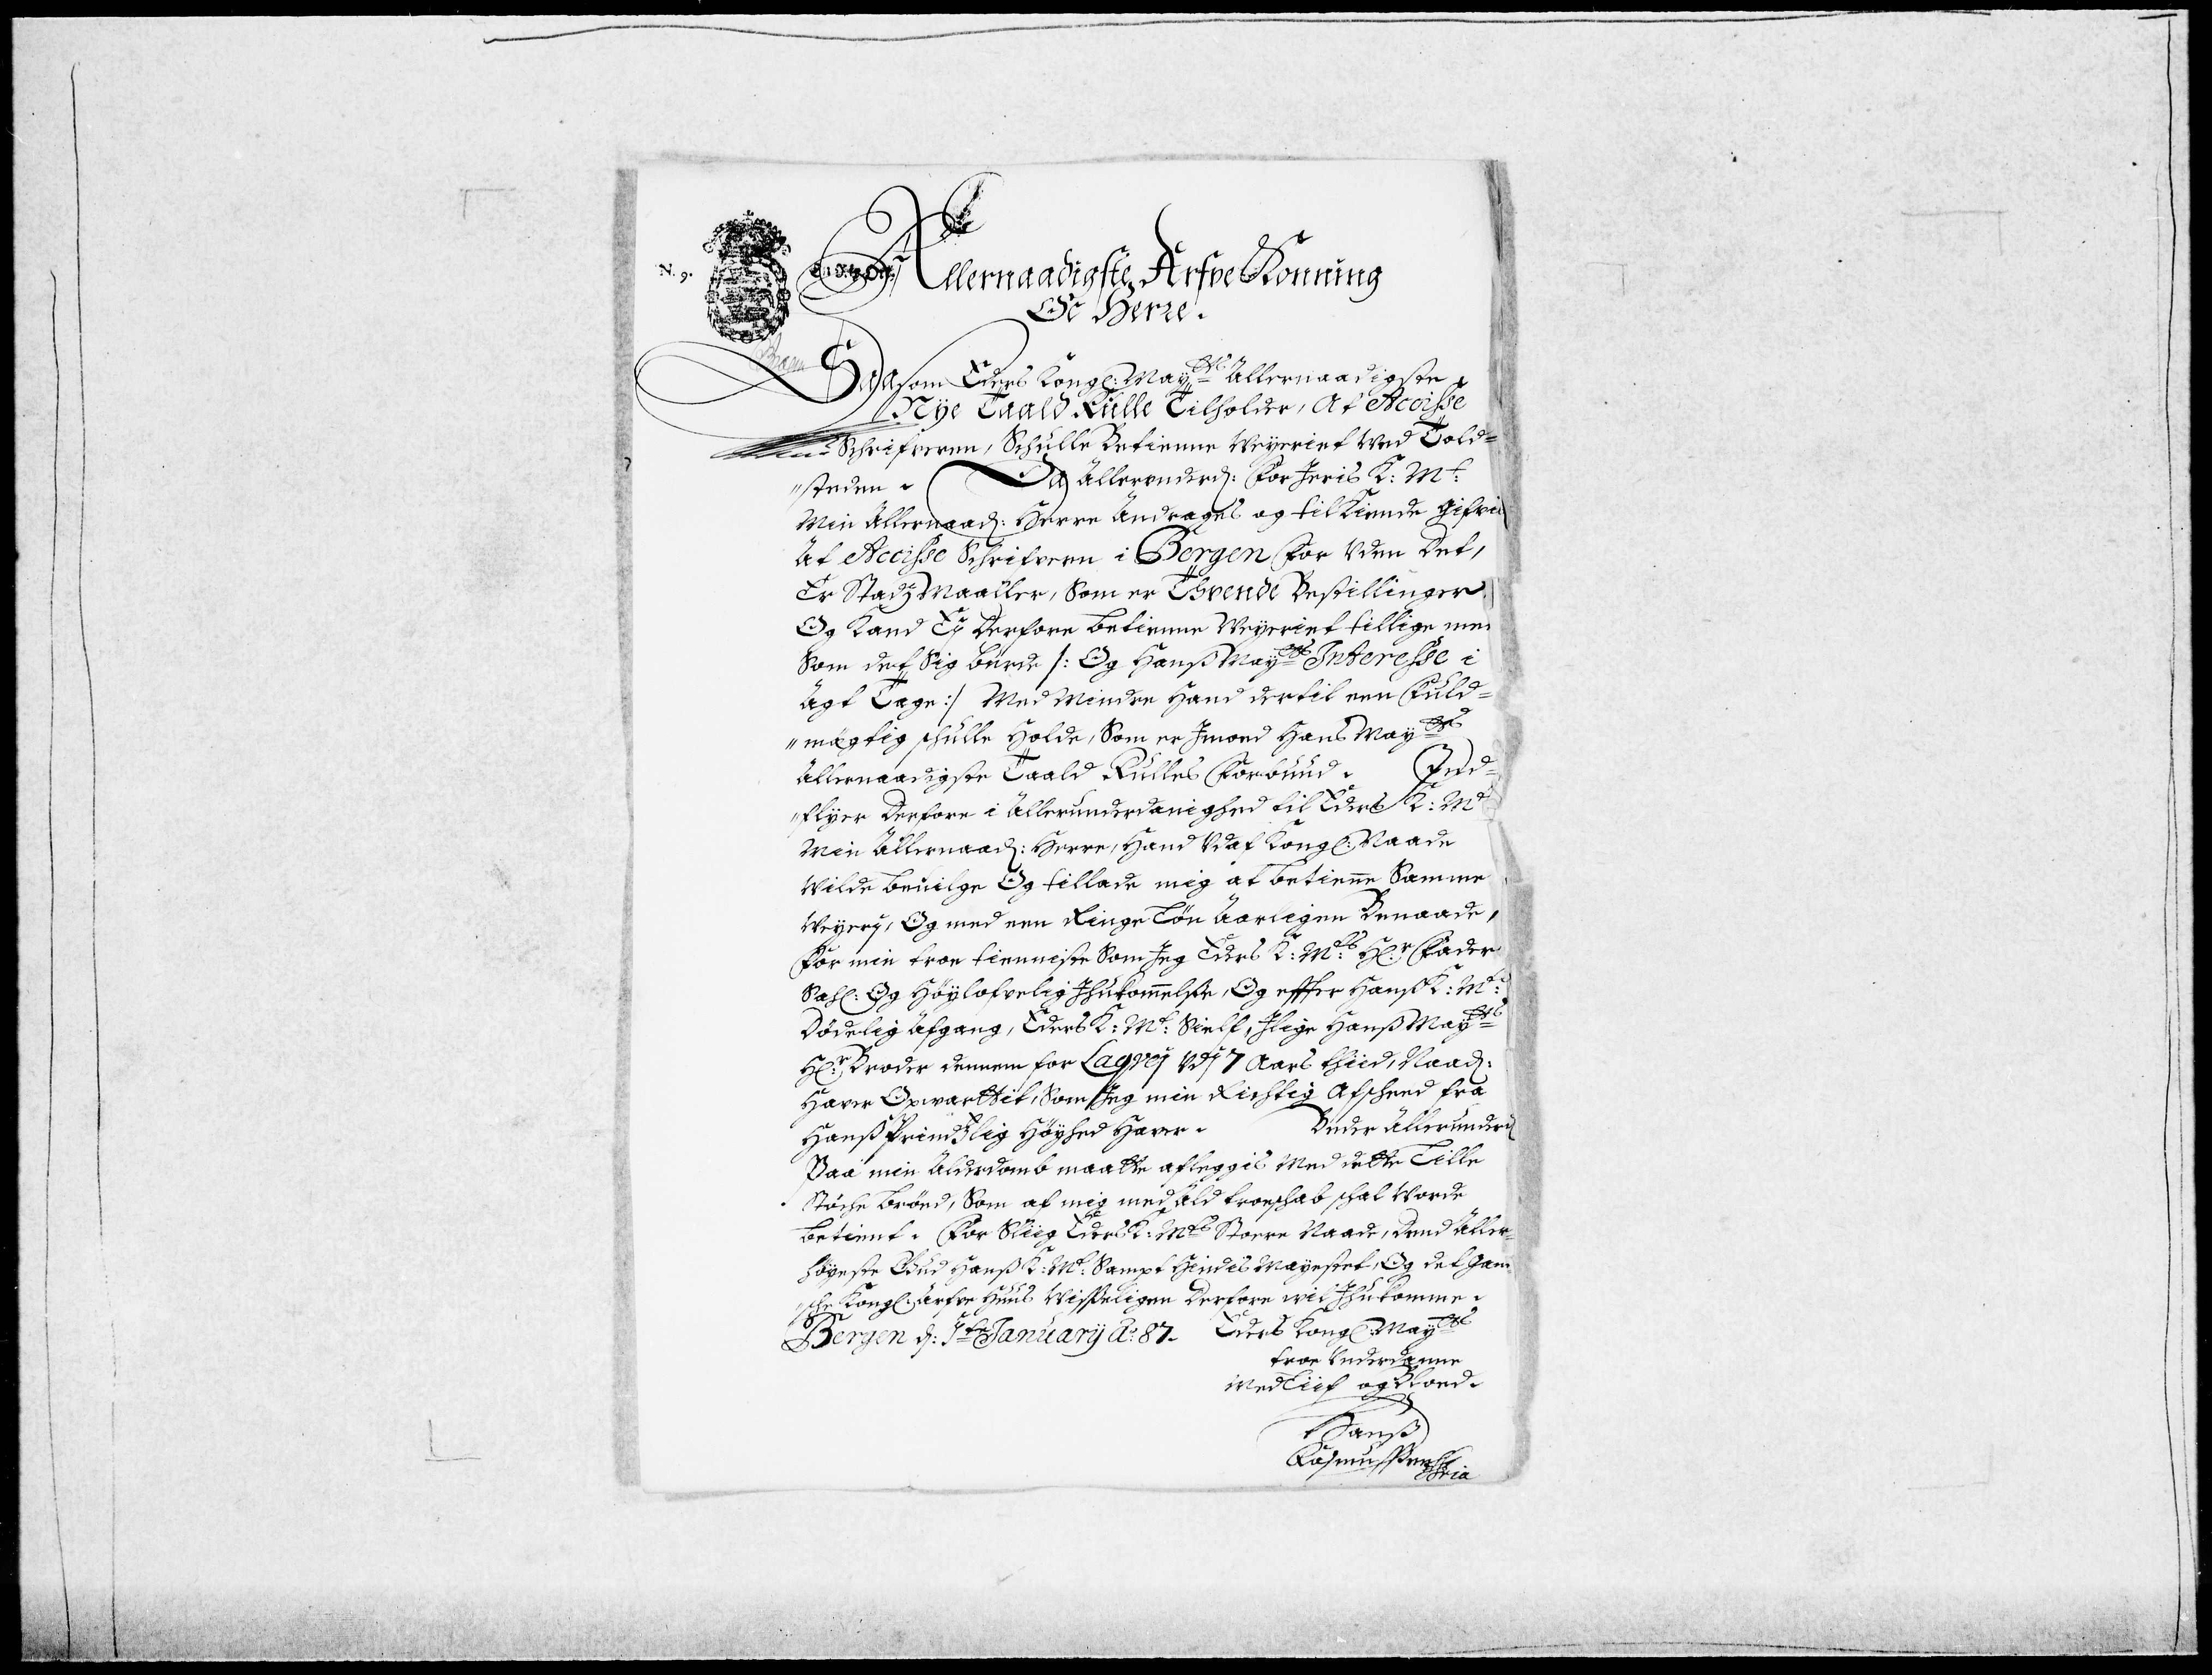 N. 9.
Allernaadigste Arfve Konning
Oc Herre.
Saasom Eders Kongl: Mayts Allernaadigste
Nÿe Taald Rulle Tilholder, At Accisse
Schrifveren, Schulle Betienne Veyeriet Ved Told=
"steden. Da Allerunderd: For Jeris K: Mt:
Min Allernaad: Herre Andrages og tilkiende gifvis
At Accisse Schrifveren i Bergen for uden Det,
Er Stadz Maaller, Som er Thvende Bestillinger
Og Kand Ey Derfore betienne Veyeriet tillige med
Som det Sig burde /: Og Hanß Mayts Interesse i
Agt Tage :/ Med Mindre Hand dertil een Fuld=
"mægtig schulle Holde, Som er Jmod Hans Mayts
Allernaadigste Taald Rulles Forbuud. Jnd=
"flyer Derfore i Allerunderdanighed til Eders K: Mt
Min Allernaad: Herre, Hand Udaf Kongl: Naade
Vilde beuilge Og tillade mig at betienne Samme
Veyery, Og med een Ringe Løn Aarligen Benaade,
For min troe tienniste Som Jeg Eders K: Mts Hr Fader
Sahl: Og Høylofvelig Jhukommelse, Og effter Hanß K: Mts:
Dødelig Afgang, Eders K: Mt: Sielf, Jlige Hanß Mayts
Hr Broder dennem for Laqvej Udj 7 Aars thiid, Naad:
Haver Opwarttet, Som Jeg min Richtig Afscheed fra
Hanß Prindzlig Høyhed Haver. Beder Allerunderd
Paa min Alderdomb maatte afleggis Med dette Lille
Støche Brød, Som af mig med Ald troeschab schal Vorde
betient. For Sliig Eders K: Mts Stoere Naade, Dend Aller=
høyeste Gud Hanß K: Mt: Sampt Hindes Mayestet, Og det gand
"sche Kongl: Arfve Huus Visseligen Derfore vil Jhukomme.
Bergen d: 1te January Ao: 87. Eders Kongl: Mayts
troe Underdanne
Med Liif og Bloed.
Hanß
Rasmussen